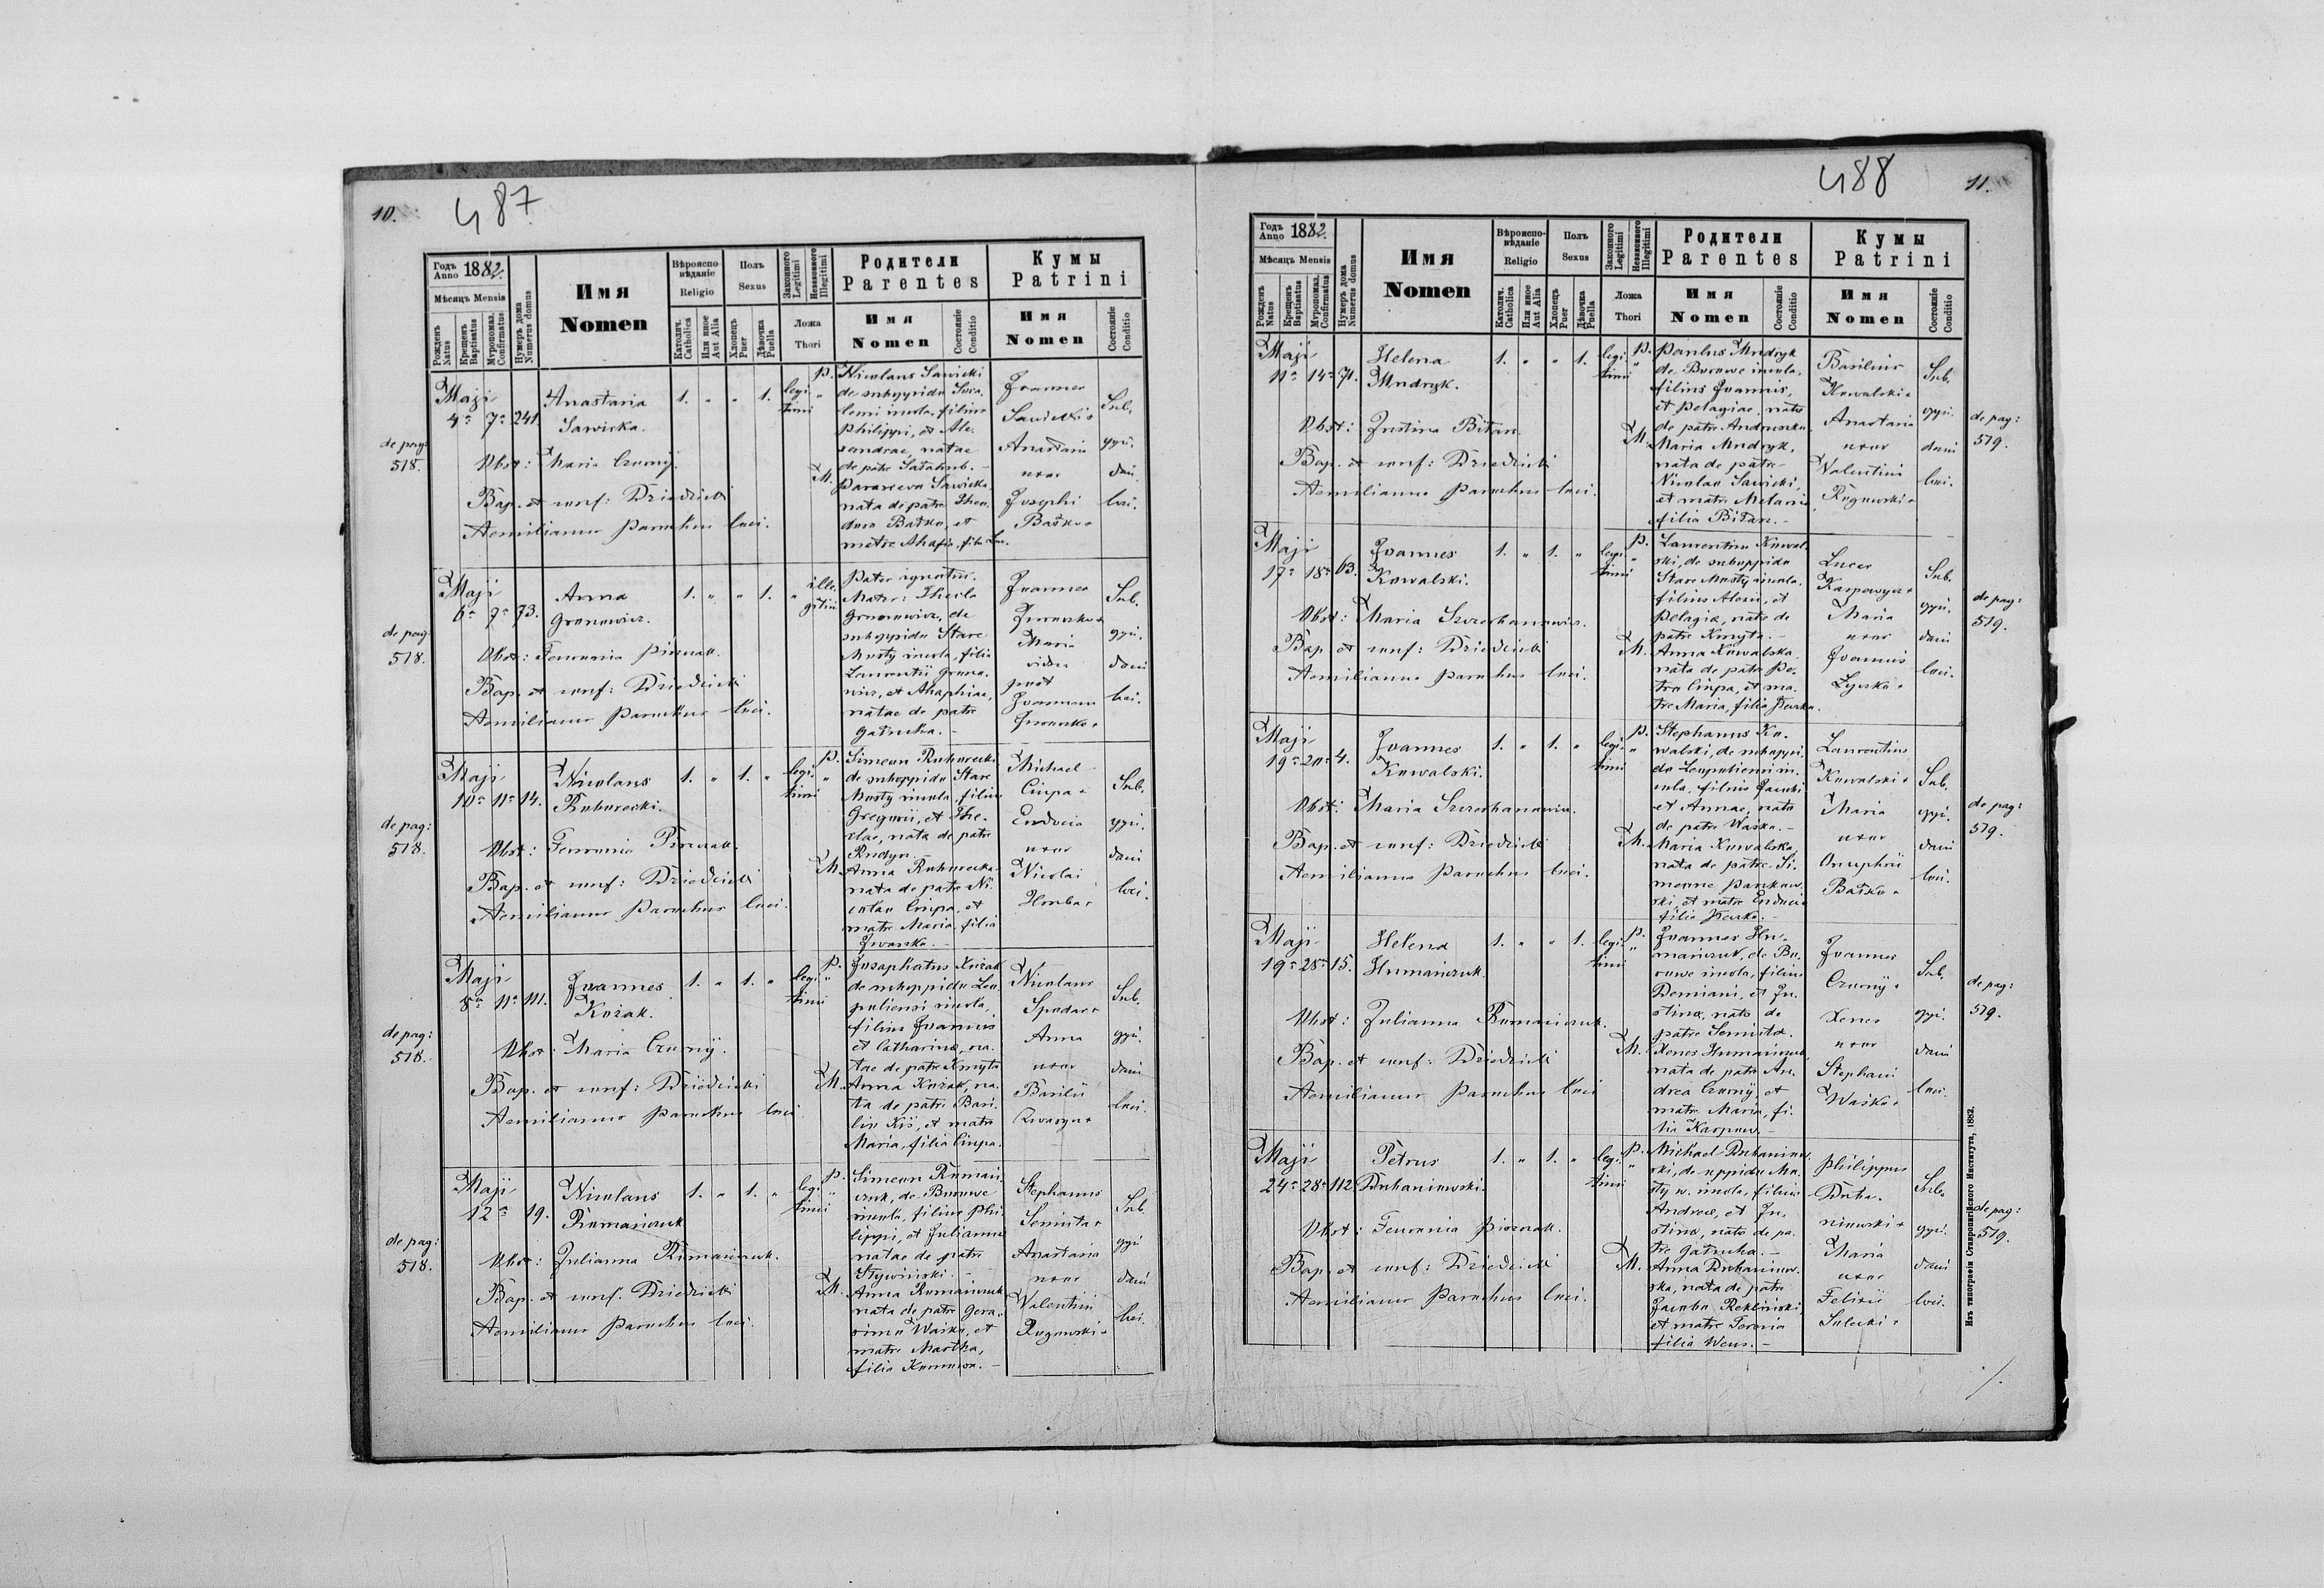 10.
487
Годъ Anno 1882.
Мѣсяцъ Mensis
Рожденъ Natus
Крещенъ Baptisatus
Мvропомаз. Confirmatus
Нумеръ дома Numerus domus
Имя Nomen
Вѣроиспо-вѣданіе Religio
Католич. Catholica
Или иное Aut Alia
Полъ Sexus
Хлопецъ Puer
Дѣвочка Puella
Законного Legitimi
Незаконного Illegitimi
Ложа Thori
Родители Parentes
Имя Nomen
Состояніе Conditio
Кумы Patrini
Имя Nomen
Состояніе Conditio
de pag: 518.
Maji
4ª 7ª 241.
Anastasia
Sawicka.
1. „ „ 1.
legi
timi
Obst: Maria Czornÿ.
Bap. et conf: Dziedzicki
Aemilianus Parochus loci.
P. Nicolaus Sawicki
de suboppido
incola, filius
Philippi, et Ale-
xandrae, natae
de patre
M. Parasceva Sawicka
nata de patre Theo-
doro Baśko, et
matre Ahafia, filia
Joannes
Sawicki+
Anastasia
uxor
Josephi
Baśko+
Sub.
oppi.
dani
loci.
de pag: 518.
Maji
6ª 7ª 73.
Anna
Gronowicz.
1. „ „ 1. „
ille
gitimi
Obst: Fenronia Piszczak.
Bap. et conf: Dziedzicki
Aemilianus Parochus loci.
Pater ignotus.
Mater: Thecla
Gronowicz, de
suboppido Stare
Mosty incola, filia
Laurentii Grono-
wicz, et Ahaphiae,
natae de patre
Gatucha. –
Joannes
Jurowsko+
Maria
vidua
post
Joannem
Jurowsko+
Sub.
oppi.
dani
loci.
de pag: 518.
Maji
10ª 11ª 14.
Nicolaus
Ruhorecki.
1. „ 1. „
legi
timi
Obst: Fenronia Piszczak.
Bap. et conf: Dziedzicki
Aemilianus Parochus loci.
P. Simeon Ruhorecki
de suboppido Stare
Mosty incola, filius
Gregorii, et The-
clae, nata de patre
Rudyn. –
M. Anna Ruhorecka
nata de patre Ni-
colao Ciupa, et
matre Maria, filia
Iwaszko. –
Michael
Ciupa+
Eudocia
uxor
Nicolai
Horba+
Sub.
oppi.
dani
loci.
de pag: 518.
Maji
8ª 11ª 111.
Joannes
Kożak.
1. „ 1. „
legi
timi
Obst: Maria Czornÿ.
Bap. et conf: Dziedzicki
Aemilianus Parochus loci
P. Josaphatus Kożak
de suboppido Leo-
poliensi incola,
filius Joannis
et Catharinae, na-
tae de patre Kmyta
M. Anna Kożak, na-
ta de patre Basi-
lio Kiś, et matre
Maria, filia Ciupa.
Nicolaus
Spodar+
Anna
uxor
Basilii
Sub.
oppi.
dani
loci.
de pag: 518.
Maji
12ª 19.
Nicolaus
Romańczuk
1. „ 1. „
legi
timi
Obst: Julianna Romańczuk.
Bap. et conf: Dziedzicki
Aemilianus Parochus loci.
P. Simeon Romań-
czuk, de Borowe
incola, filius Phi-
lippi, et Julianna
natae de patre
M. Anna Romańczuk
nata de patre Gera-
simo Waśko, et
matre Martha,
filia
Stephanus
Semista+
Anastasia
uxor
Valentini
Rogowski+
Sub.
oppi
dani
loci.
488
11.
Годъ Anno 1882.
Мѣсяцъ Mensis
Рожденъ Natus
Крещенъ Baptisatus
Мvропомаз. Confirmatus
Нумеръ дома Numerus domus
Имя Nomen
Вѣроиспо-вѣданіе Religio
Католич. Catholica
Или иное Aut Alia
Полъ Sexus
Хлопецъ Puer
Дѣвочка Puella
Законного Legitimi
Незаконного Illegitimi
Ложа Thori
Родители Parentes
Имя Nomen
Состояніе Conditio
Кумы Patrini
Имя Nomen
Состояніе Conditio
Maji
11ª 14ª 71.
Helena
Mudryk.
1. „ „ 1.
legi
timi
Obst: Justina Bitan.
Bap. et conf: Dziedzicki
Aemilianus Parochus loci.
P. Paulus Mudryk
de Borowe incola.
filius Joannis,
et Pelagiae, nata
de patre Andruszko
M. Maria Mudryk,
nata de patre
Nicolao Sawicki,
et matre Melania,
filia Bitan. –
Basilius
Kowalski+
Anastasia
uxor
Valentini
Rogowski+
Sub.
oppi.
dani
loci.
de pag: 519.
Maji
17ª 18ª 63.
Joannes
Kowalski.
1. „ 1. „
legi
timi
Obst: Maria Szczerbanowicz.
Bap. et conf: Dziedzicki
Aemilianus Parochus loci.
P. Laurentius Kowal-
ski, de suboppido
Stare Mosty incola.
filius Alexii, et
Pelagia, nata de
patre Kmyta. –
M. Anna Kowalska
nata de patre Pe-
tro Ciupa, et ma-
tre Maria, filia
Lucas
Karpowycz+
Maria
uxor
Joannis
Łyszko+
Sub.
oppi.
dani
loci.
de pag: 519.
Maji
19ª 20ª 4.
Joannes
Kowalski.
1. „ 1. „
legi
timi
Obst: Maria Szczerbanowicz.
Bap. et conf: Dziedzicki
Aemilianus Parochus loci.
P. Stephanus Ko-
walski, de suboppi-
do Leopoliensi in-
cola, filius Jacobi
et Annae, nata
de patre Waśko. –
M. Maria Kowalska,
nata de patre Si-
meone Pankow-
ski, et matre Eudocia
filia
Laurentius
Kowalski+
Maria
uxor
Onuphrii
Baśko+
Sub.
oppi.
dani
loci.
de pag: 519.
Maji
19ª 28ª 15.
Helena
Humańczuk.
1. „ „ 1.
legi
timi
Obst: Julianna Romańczuk.
Bap. et conf: Dziedzicki
Aemilianus Parochus loci
P. Joannes Hu-
mańczuk, de Bo-
rowe incola, filius
Demiani, et Ju-
stina, nata de
patre Semista.
M. Xenes Humańczuk
nata de patre An-
drea Czornÿ, et
matre Maria, fi-
lia Karpow. –
Joannes
Czornÿ+
Xenes
uxor
Stephani
Waśko+
Sub.
oppi.
dani
loci.
de pag: 519.
Maji
24ª 28ª 112
Petrus
Duhaniowski.
1. „ 1. „
legi
timi
Obst: Fenronia Piszczak.
Bap. et conf: Dziedzicki
Aemilianus Parochus loci.
P. Michael Duhaniow-
ski, de oppido Mo-
sty w. incola, filius
Andreae, et Ju-
stina, nata de pa-
tre Gatucha. –
M. Anna Duhaniow-
ska, nata de patre
Jacobo Rekliński
et matre
filia Wcus. –
Philippus
Duha-
niowski+
Maria
uxor
Felixii
Sulecki+
Sub.
oppi.
dani
loci.
de pag: 519.
Изъ типографіи Ставропигійского Института, 1882.